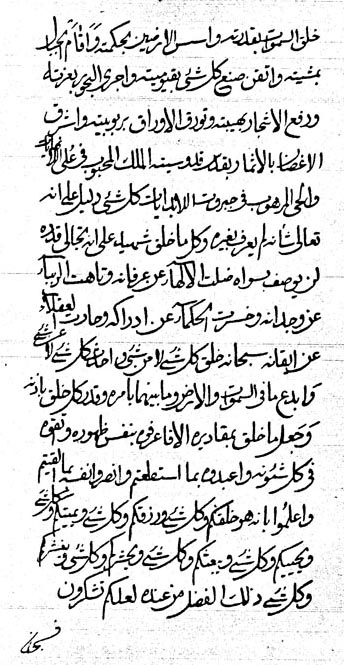 خلق السموات بقدرته واسس الارضين بحكمته واقام الجبال
بمشيته واتقن صنع كل شئ بقيوميته واجرى البحر بعزته
ورفع الاشجار بهيبته وتورق الاوراق بربوبيته واشرق
الاغصان بالاثمار بقدوسيته الملك المحبوب فى على
والحى المرهوب فى جبروت البدايات كل شئ دليل على انه
تعالى شانه لم يعرف بغيره وكل ما خلق شهيد على انه تعالى قدره
لن يوصف بسواه ضلت الافكار عن عرفانه وتاهت
عن وجدانه وخسرت الحكماء عن ادراكه وحارت العقلاء
عن ايقانه سبحانه خلق كل شئ لا من شئ
وابدع ما فى السموات والارض وما بينهما بامره وقدر كل خلق باذنه
وجعل ما خلق بمقاديره الا فاعرفوه بنفس ظهوره وتقوه
فى كل شئونه واعبدوه بما استطعتم وانصروا
واعلموا بانه هو خلقكم وكل شئ ورزقكم وكل شئ ويميتكم وكل شئ
ويحييكم وكل شئ ويبعثكم وكل شئ ويحشركم وكل شئ
وكل شئ ذلك الفضل من عنده لعلكم تشكرون
فسبحان